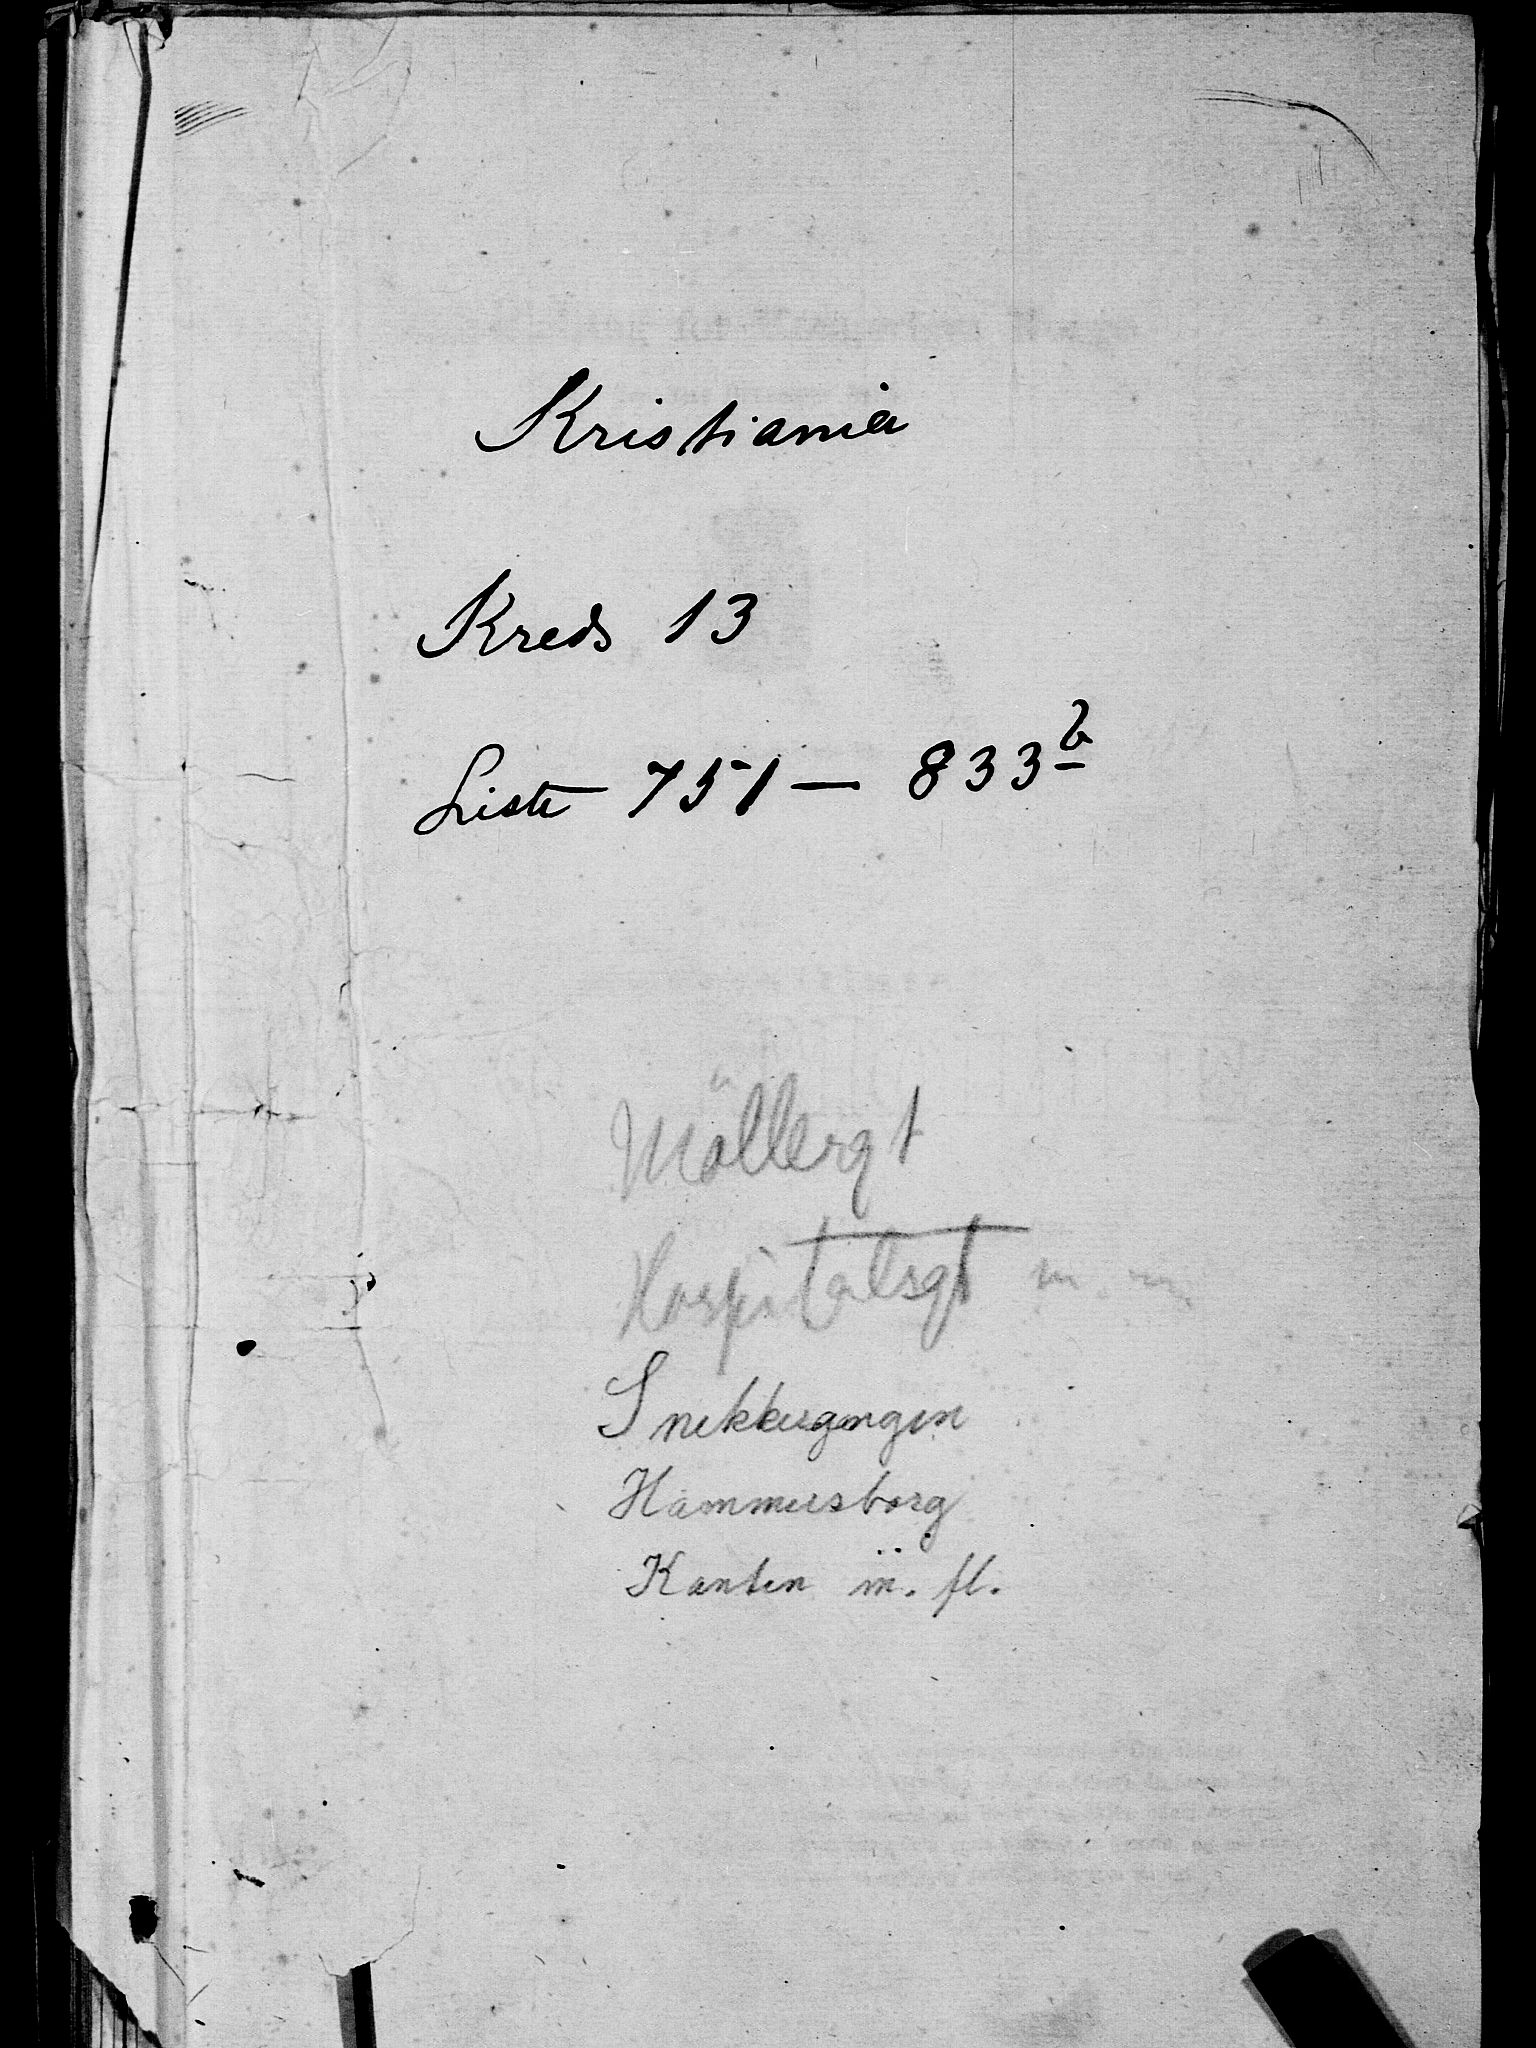 Kristiania
Kreds 13
Liste 751 — 833b
Möllergt
Hospitalsgt m. m.
Snekkergangen
Hammersborg
Kanten m. fl.